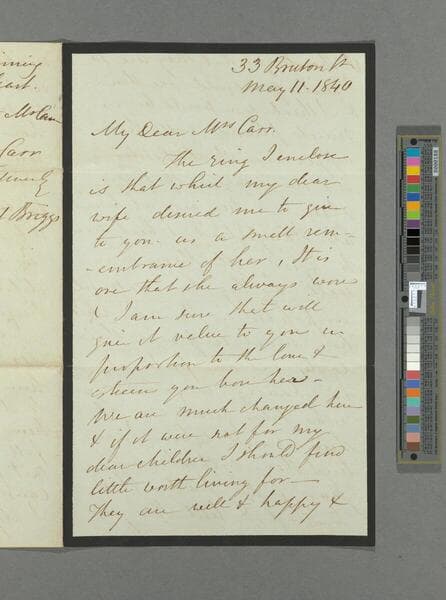 ining
eart.
Mrs Carr
Carr
Briggs
33 Bruton St
May 11. 1840
My Dear Mrs Carr.
The ring I enclose
is that which my dear
wife desired me to give
to you as a small rem-
-embrance of her, It is
one that she always wore
& I am sure that will
give it value to you in
proportion to the love &
esteem you bore her -
We are much changed here
& if it were not for my
dear children I should find
little worth living for -
They are well & happy &